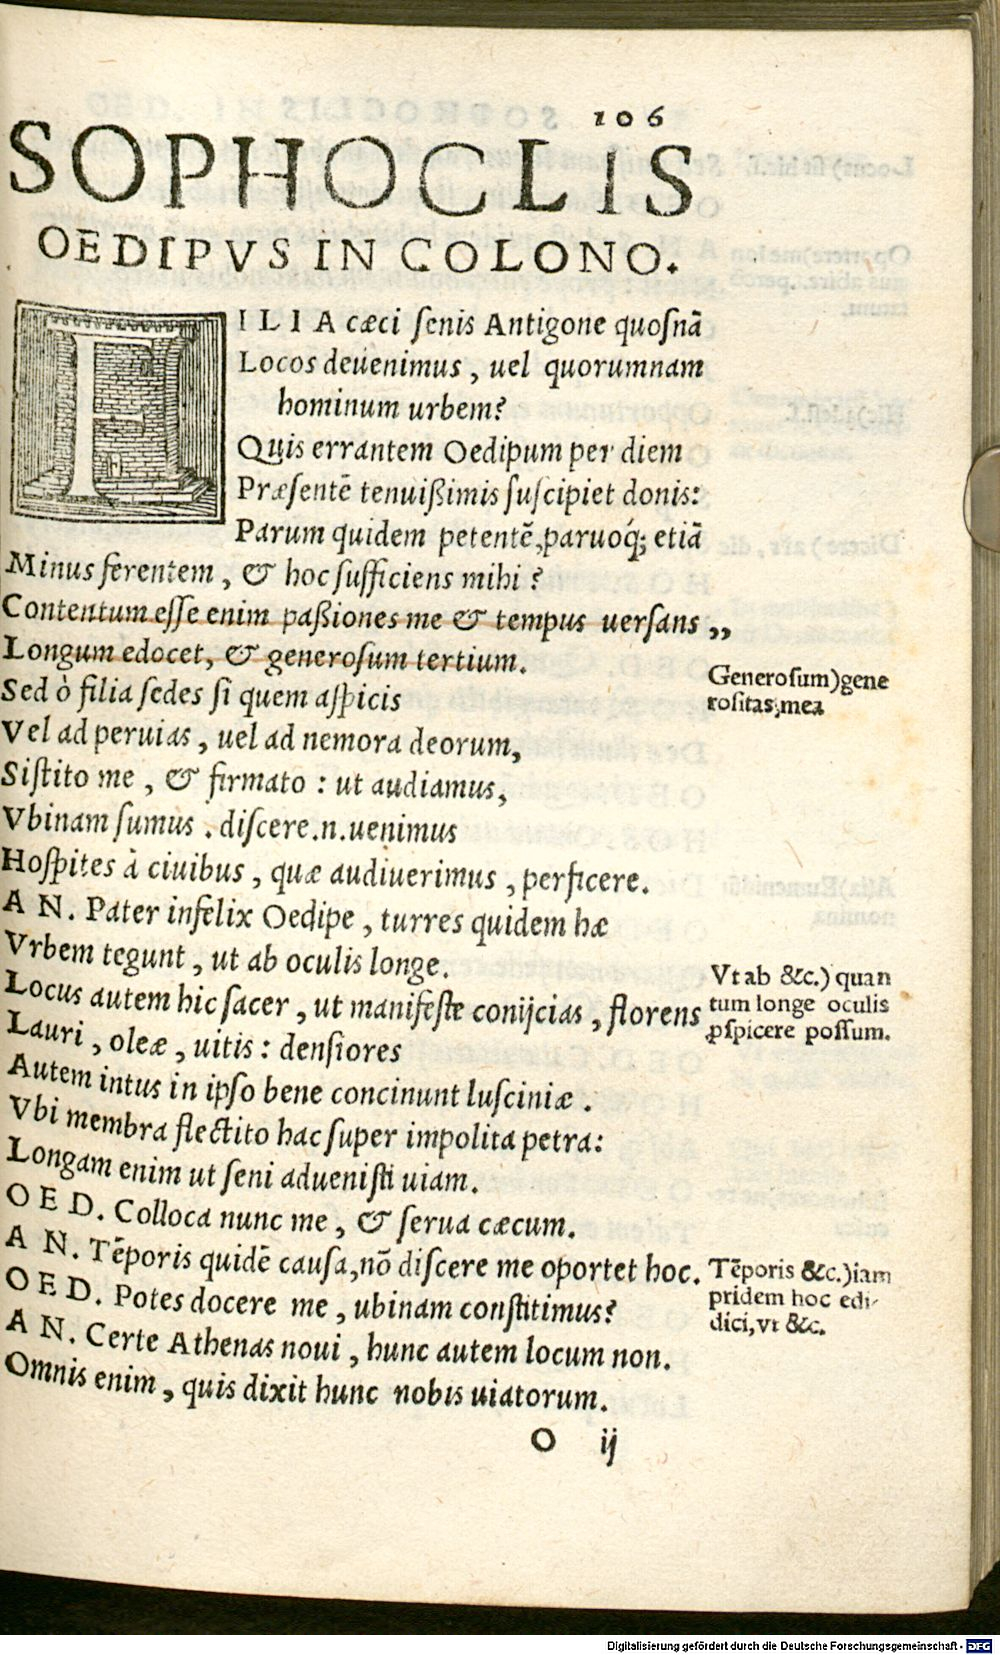 106
SOPHOCLIS
OEDIPVS IN COLONO.
FILIA cæci ſenis Antigone quoſnā
Locos deuenimus, uel quorumnam
hominum urbem?
Quis errantem Oedipum per diem
Præſentē tenuißimis ſuſcipiet donis:
Parum quidem petentē, paruoq́; etiā
Minus ferentem, & hoc ſufficiens mihi?
Contentum eſſe enim paßiones me & tempus uerſans „
Longum edocet, & generoſum tertium.
Sed ò filia ſedes ſi quem aſpicis
Vel ad peruias, uel ad nemora deorum,
Siſtito me, & firmato: ut audiamus,
Vbinam ſumus. diſcere.n.uenimus
Hoſpites à ciuibus, quæ audiuerimus, perficere.
AN. Pater infelix Oedipe, turres quidem hæ
Vrbem tegunt, ut ab oculis longe.
Locus autem hic ſacer, ut manifeſte conijcias, florens
Lauri, oleæ, uitis: denſiores
Autem intus in ipſo bene concinunt luſciniæ.
Vbi membra flectito hac ſuper impolita petra:
Longam enim ut ſeni adueniſti uiam.
OED. Colloca nunc me, & ſerua cæcum.
AN. Tēporis quidē cauſa, nō diſcere me oportet hoc.
OED. Potes docere me, ubinam conſtitimus?
AN. Certe Athenas noui, hunc autem locum non.
Omnis enim, quis dixit hunc nobis uiatorum.
O ij
Generoſum)gene
roſitas, mea
Vt ab &c.) quan
tum longe oculis
ꝑſpicere poſſum.
Tēporis &c.)iam
pridem hoc edi-
dici, vt &c.
Digitalisierung gefördert durch die Deutsche Forschungsgemeinschaft - DFG